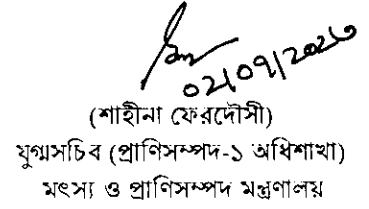 ০২/০৭/২০২৩
(শাহীনা ফেরদৌসী)
যুগ্মসচিব (প্রাণিসম্পদ-১ অধিশাখা)
মৎস্য ও প্রাণিসম্পদ মন্ত্রণালয়